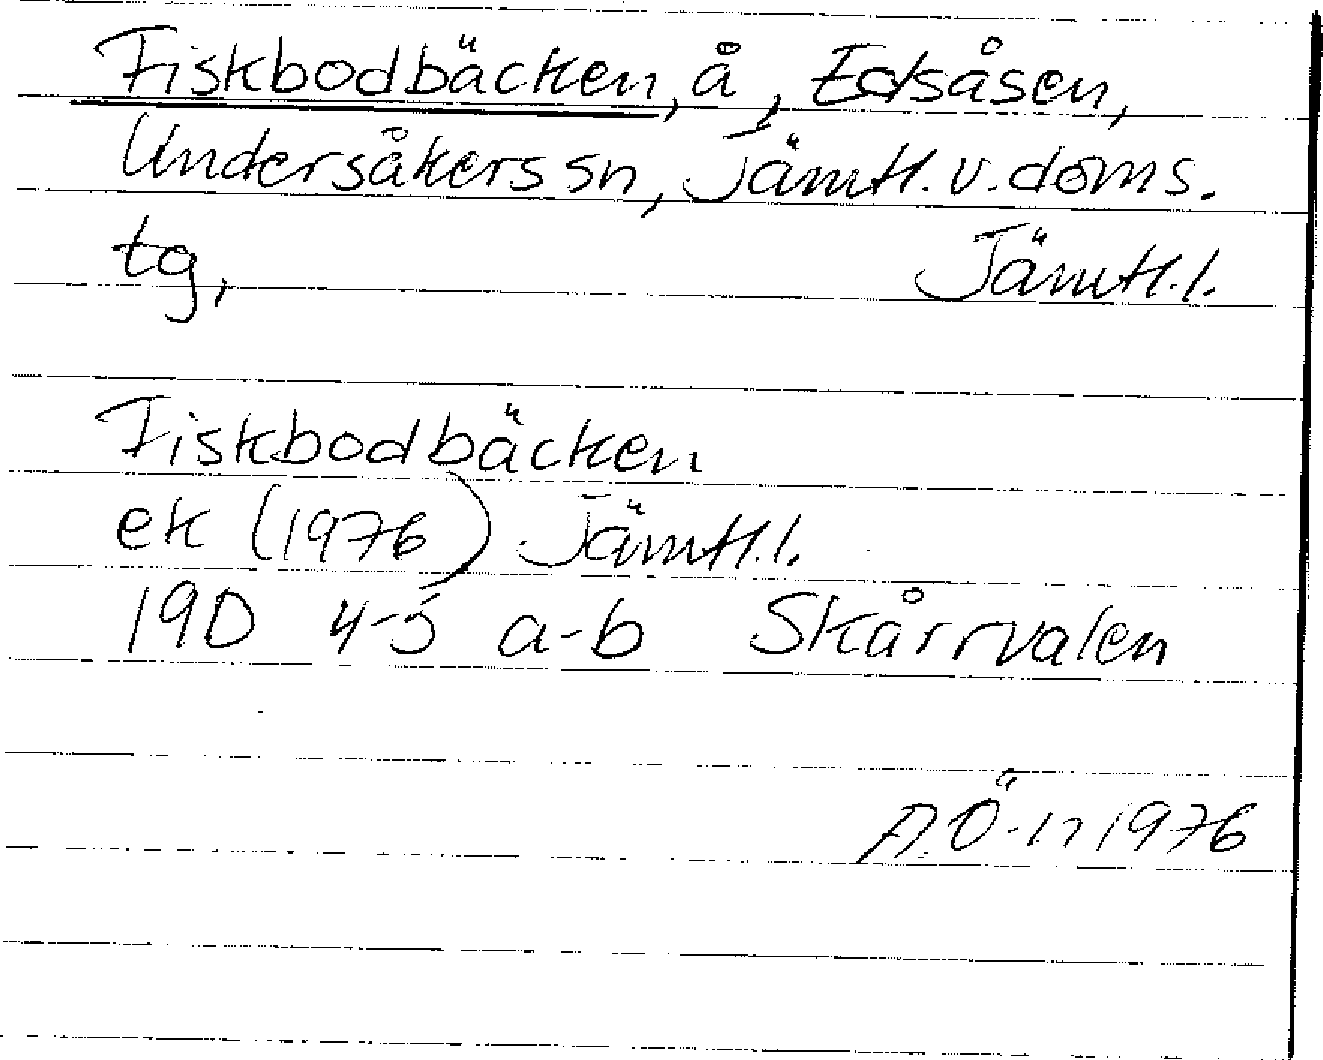 Fiskbodbäcken, å, Edsåsen,
Undersåkers sn, Jämtl. v. doms.
tg, Jämtl. l.
Fiskbodbäcken
ek (1976) Jämtl. l.
19D 4-5 a-b Skårrvalen
A.Ö-n 1976